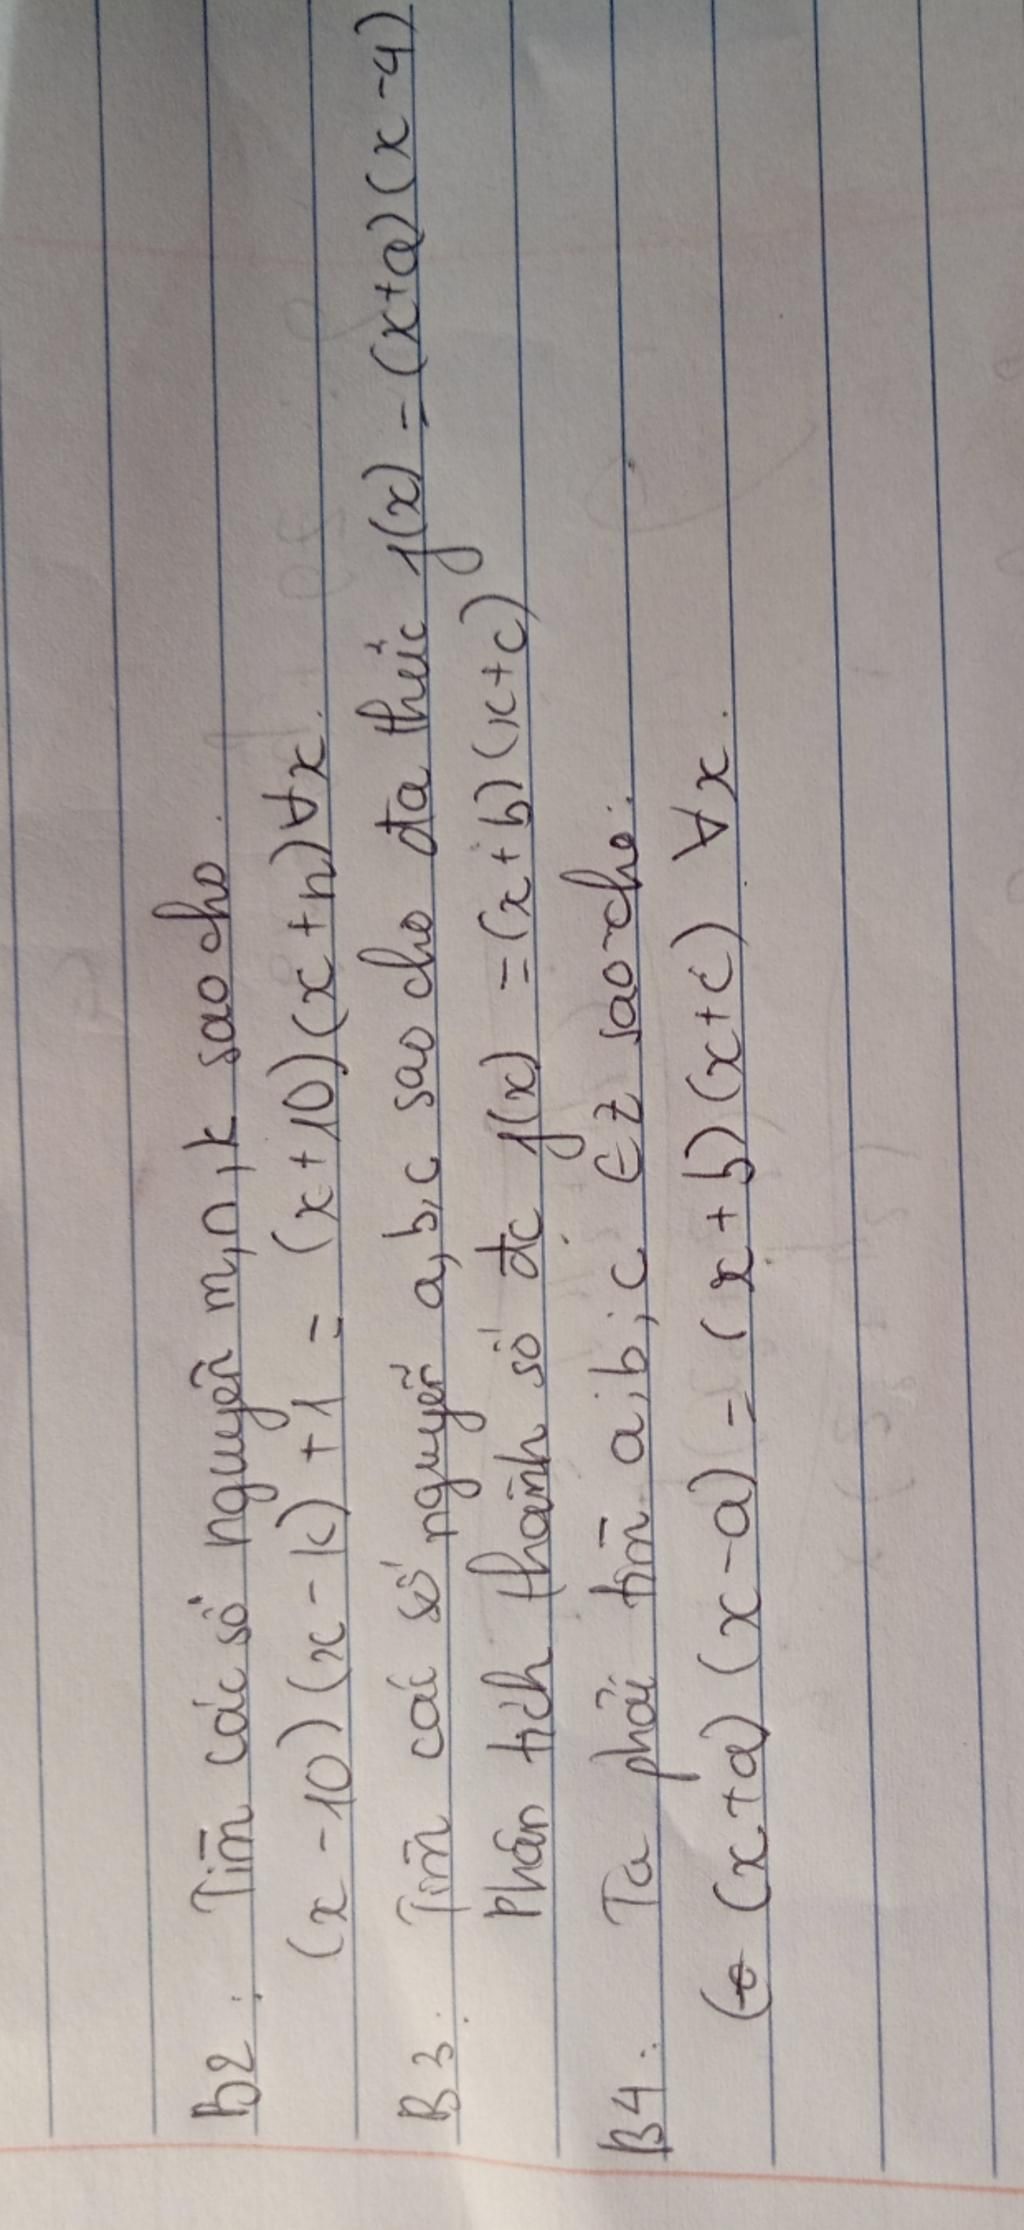 B2: Tìm các số nguyên m, n, k sao cho.
(x - 10)(x - k) + 1 = (x + 10)(x + n) ∀x.
B3: Tìm các số nguyên a, b, c sao cho đa thức f(x) = (x+a)(x-4)
Phân tích thành số đc f(x) = (x+b)(x+c)
B4: Ta phải tìm a; b; c ∈ Z sao cho:
(x+a)(x-a) = (x+b)(x+c) ∀x.